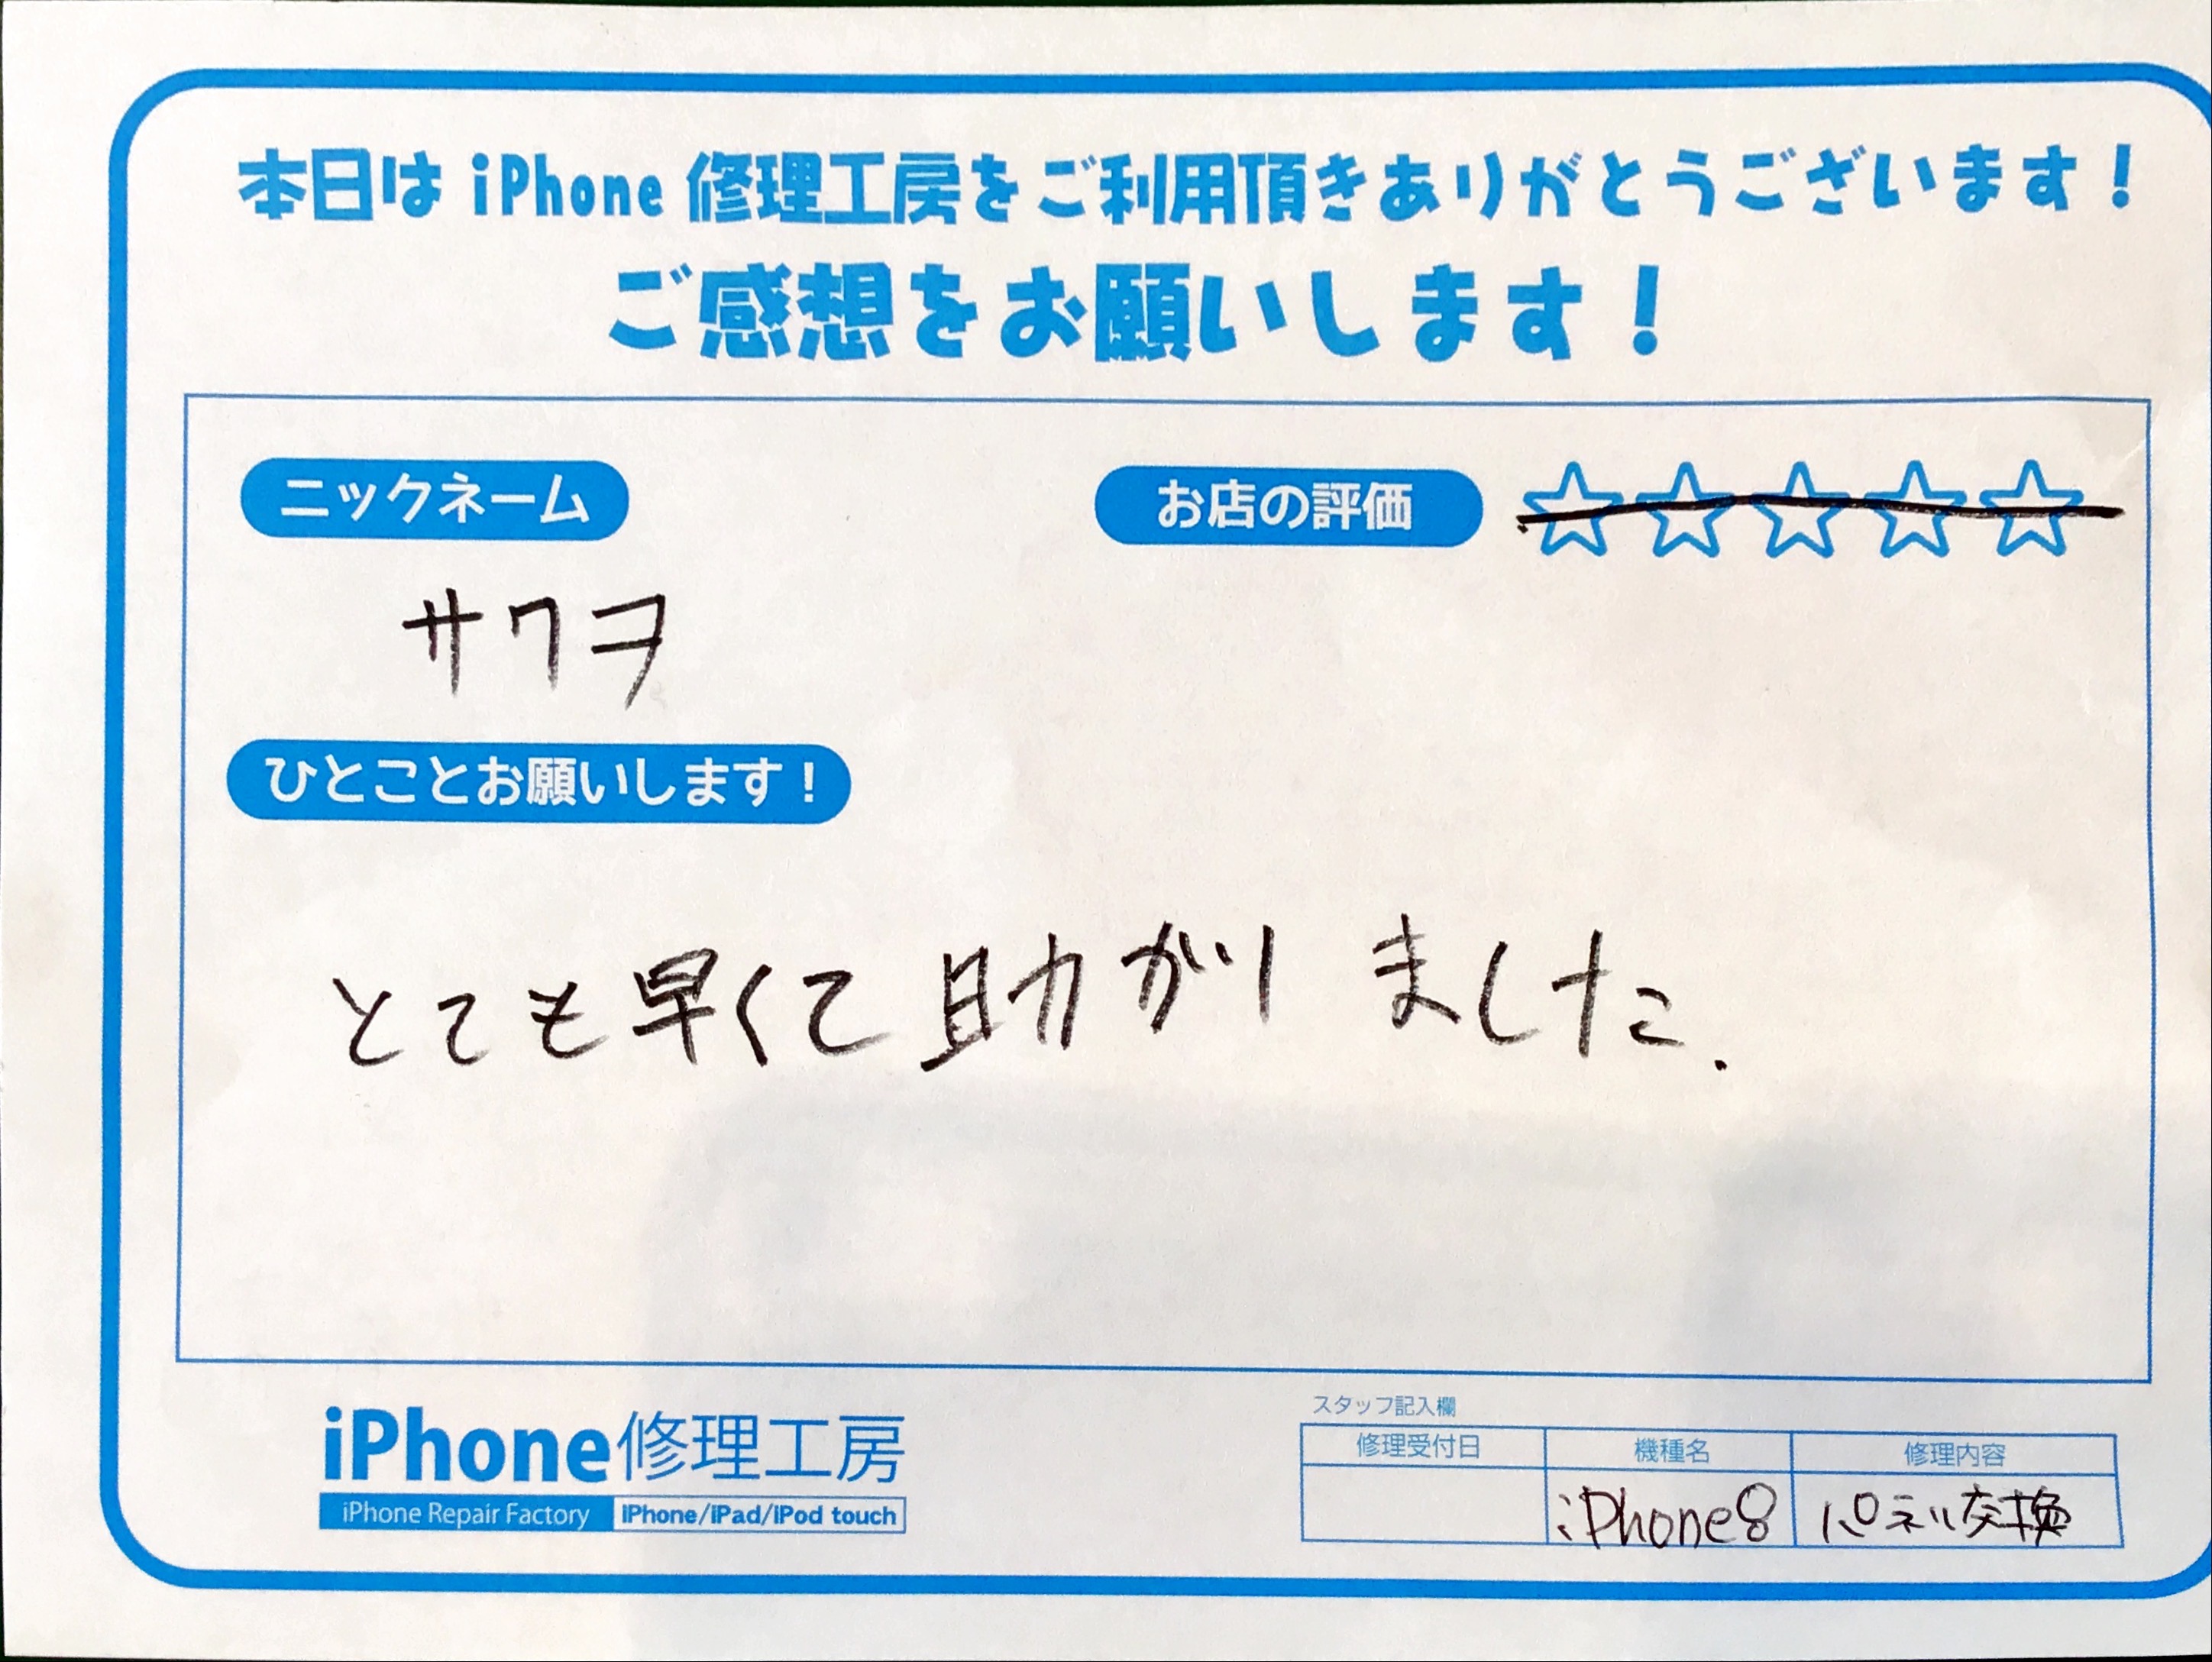 本日は iPhone 修理工房をご利用頂きありがとうございます！
ご感想をお願いします！
ニックネーム
お店の評価 ☆☆☆☆☆
サワヲ
ひとことお願いします！
とても早くて助かりました.
iPhone修理工房
iPhone Repair Factory iPhone/iPad/iPod touch
スタッフ記入欄
修理受付日 機種名 修理内容
iPhone8 パネル交換